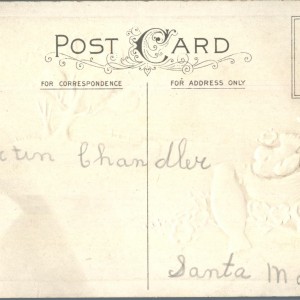 POST CARD
FOR CORRESPONDENCE
FOR ADDRESS ONLY
Chandler
Santa